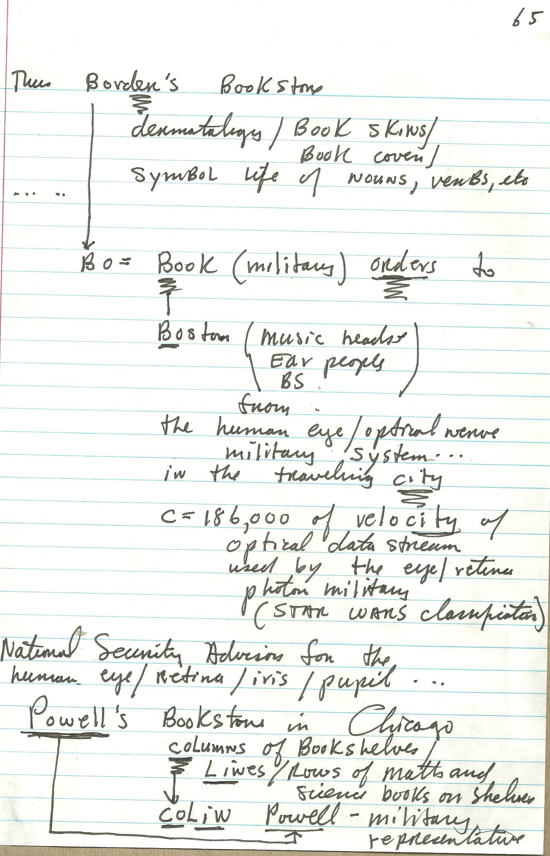 65
Thus Borden's Bookstore
dermatology / Book skins/
Book cover/
Symbol life of nouns, verbs, etc
... ..
Bo = Book (military) orders to
Boston (music heads
Ear people
BS)
from
the human eye/optical nerve
military system...
in the traveling city
C = 186,000 of velocity of
optical data stream
used by the eye/retina
photon military
(STAR WARS classification)
National Security Advisors for the
human eye/retina/iris/pupil ...
Powell's Bookstore in Chicago
columns of Bookshelves/
Lines/Rows of math and
science books on shelves
COLIN Powell - military
representative